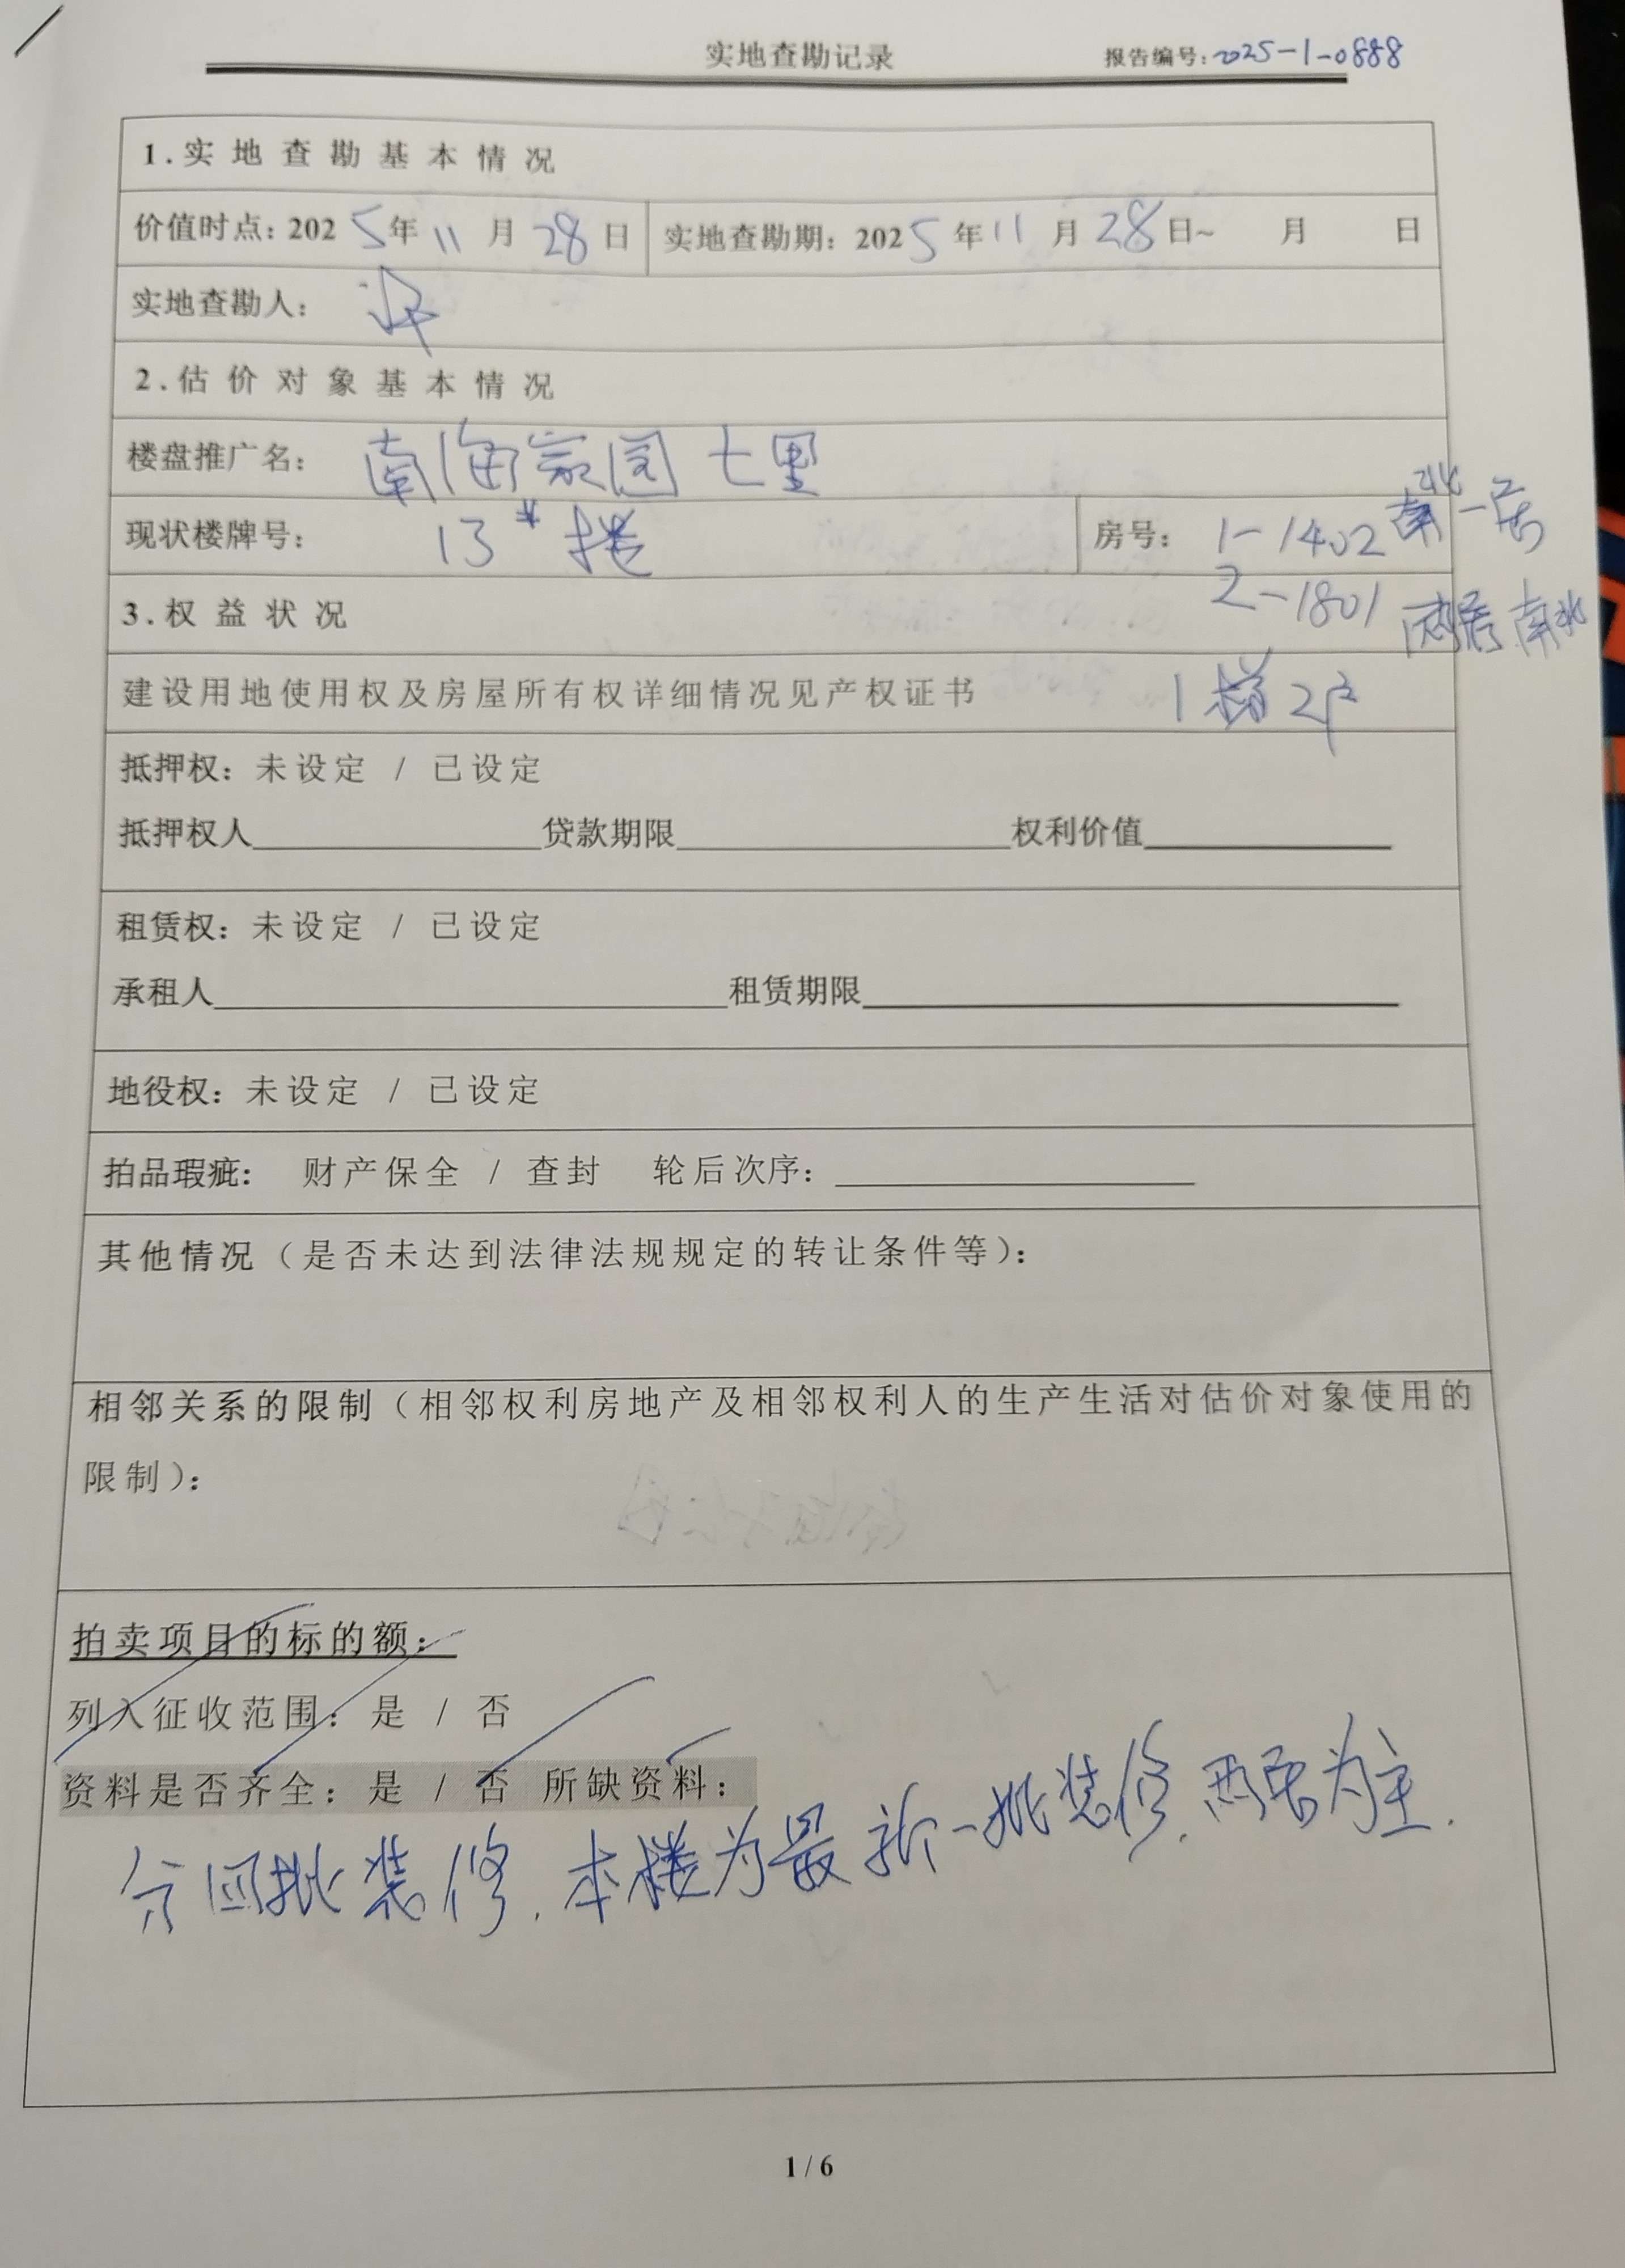 实地查勘记录 报告编号：2025-1-0888
1.实地查勘基本情况
价值时点：2025年11月28日 实地查勘期：2025年11月28日~ 月 日
实地查勘人：
2.估价对象基本情况
楼盘推广名：南海家园七里
现状楼牌号：13#楼 房号：1-1402 一居
2-1801 两居 南北
3.权益状况
建设用地使用权及房屋所有权详细情况见产权证书 1梯2户
抵押权：未设定 / 已设定
抵押权人 贷款期限 权利价值
租赁权：未设定 / 已设定
承租人 租赁期限
地役权：未设定 / 已设定
拍品瑕疵： 财产保全 / 查封 轮后次序：
其他情况（是否未达到法律法规规定的转让条件等）：
相邻关系的限制（相邻权利房地产及相邻权利人的生产生活对估价对象使用的
限制）：
拍卖项目的标的额：
列入征收范围：是 / 否
资料是否齐全：是 / 否 所缺资料：
分四批装修.本楼为最新一批装修.两居为主.
1 / 6